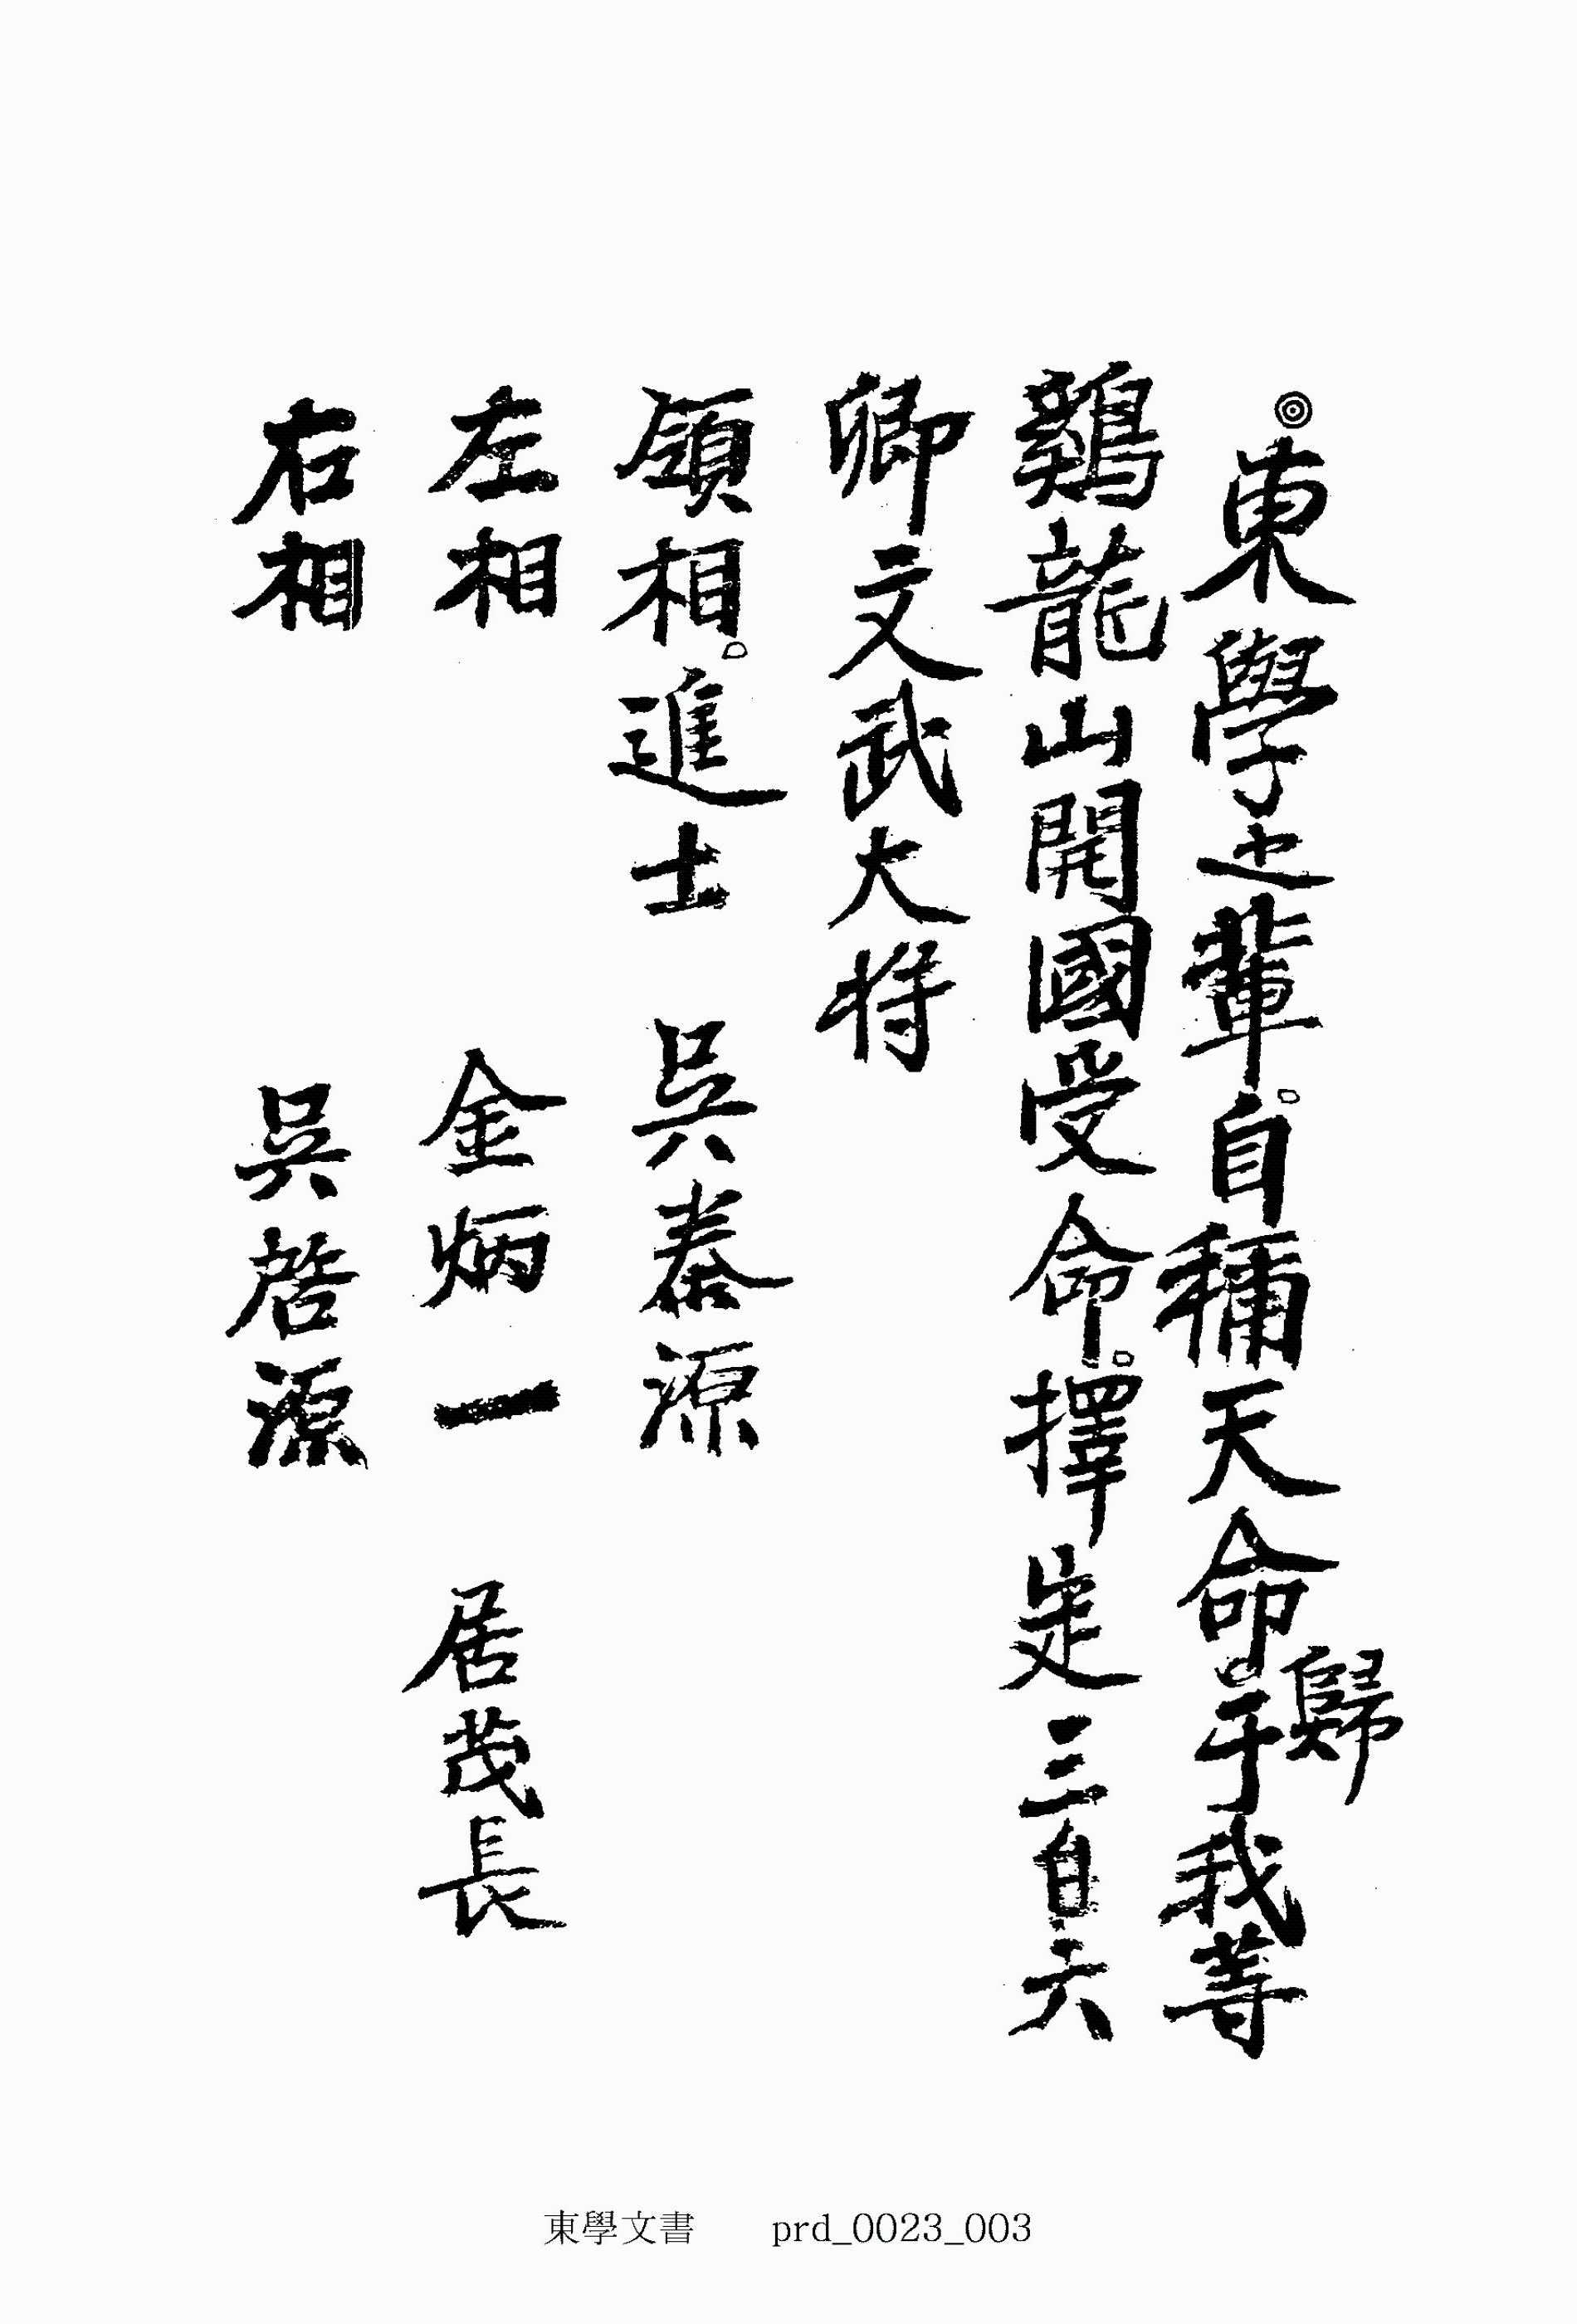 ◎東學之輩。自稱天命。歸于我等
鷄龍山開國受命。擇定三百六
卿文武大将
領相。進士 吳泰源
左相 金炳一 居茂長
右相 吳啓源
東學文書 prd_0023_003